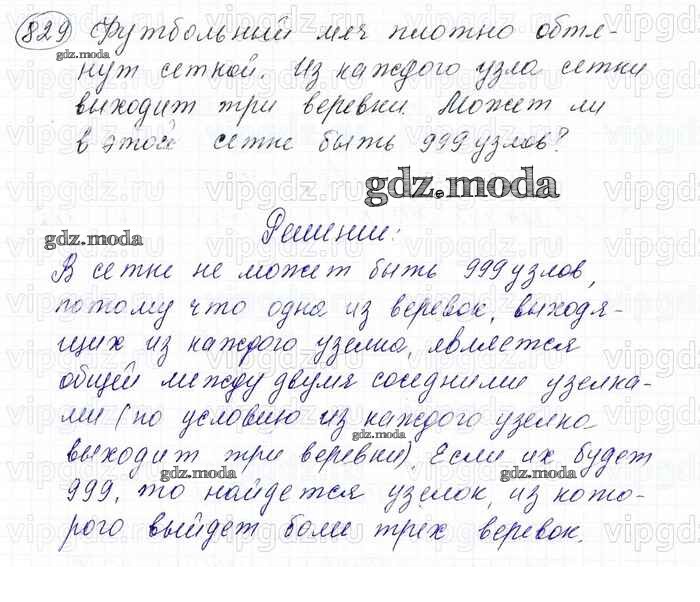 829 Футбольный мяч плотно обтя-
нут сеткой. Из каждого узла сетки
выходит три веревки. Может ли
в этой сетке быть 999 узлов?
gdz.moda
Решение:
В сетке не может быть 999 узлов,
потому что одна из веревок, выходя-
щих из каждого узелка, является
общей между двумя соседними узелка-
ми (по условию из каждого узелка
выходит три веревки). Если их будет
999, то найдется узелок, из кото-
рого выйдет боли трех веревок.